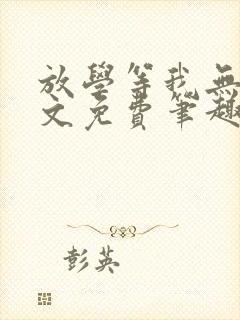 放學等我無
文免費筆趣
彭英